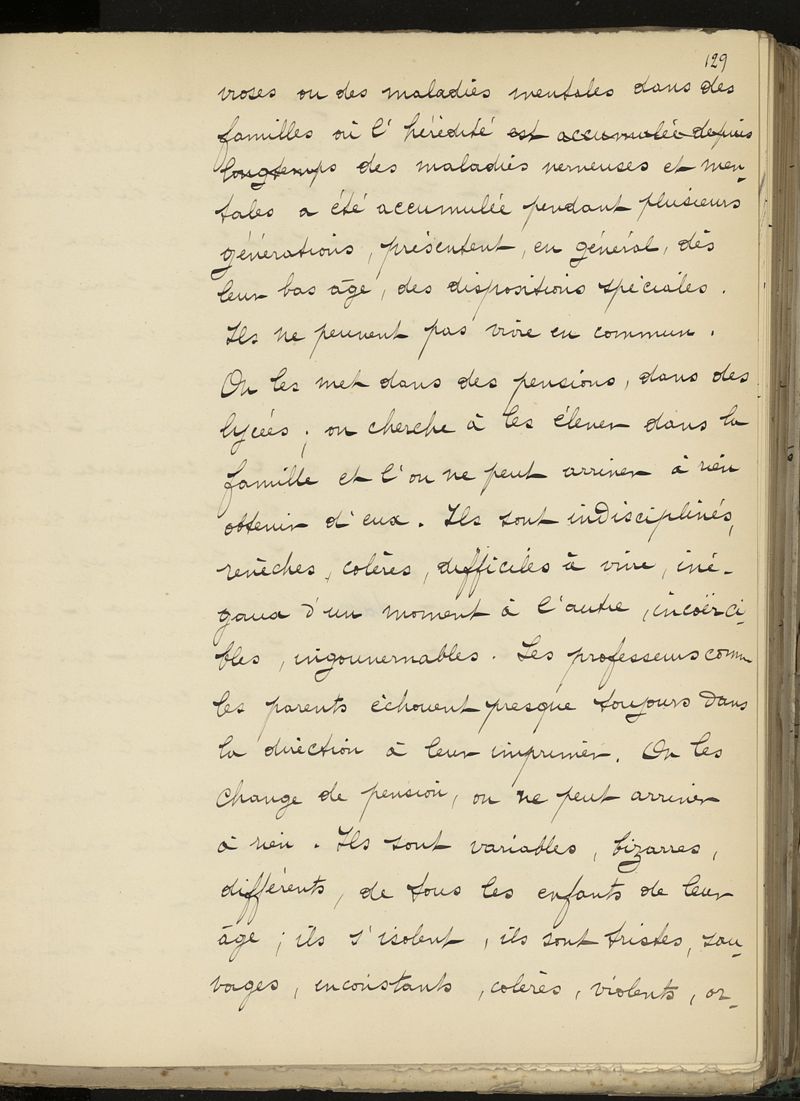 129
vroses ou des maladies mentales dans des
familles où l'hérédité est accumulée depuis
longtemps des maladies nerveuses et men-
tales a été accumulée pendant plusieurs
générations, présentent, en général, dès
leur bas âge, des dispositions spéciales.
Ils ne peuvent pas vivre en commun.
On les met dans des pensions, dans des
lycées; on cherche à les élever dans la
famille et l'on ne peut arriver à rien
obtenir d'eux. Ils sont indisciplinés,
revêches, colères, difficiles à vivre, iné-
gaux d'un moment à l'autre, incoërci-
bles, ingouvernables. Les professeurs comme
les parents échouent presque toujours dans
la direction à leur imprimer. On les
change de pension, on ne peut arriver
à rien. Ils sont variables, bizarres,
différents, de tous les enfants de leur
âge; ils s'isolent, ils sont tristes, sau-
vages, inconstants, colères, violents, or-